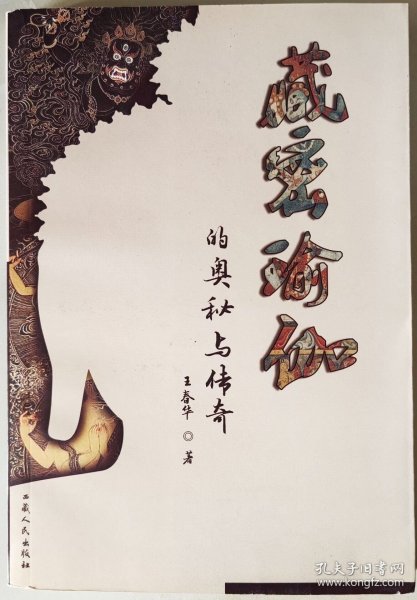 藏密瑜伽
的奥秘与传奇
王春华◎著
西藏人民出版社
孔夫子旧书网
www.kongfz.com